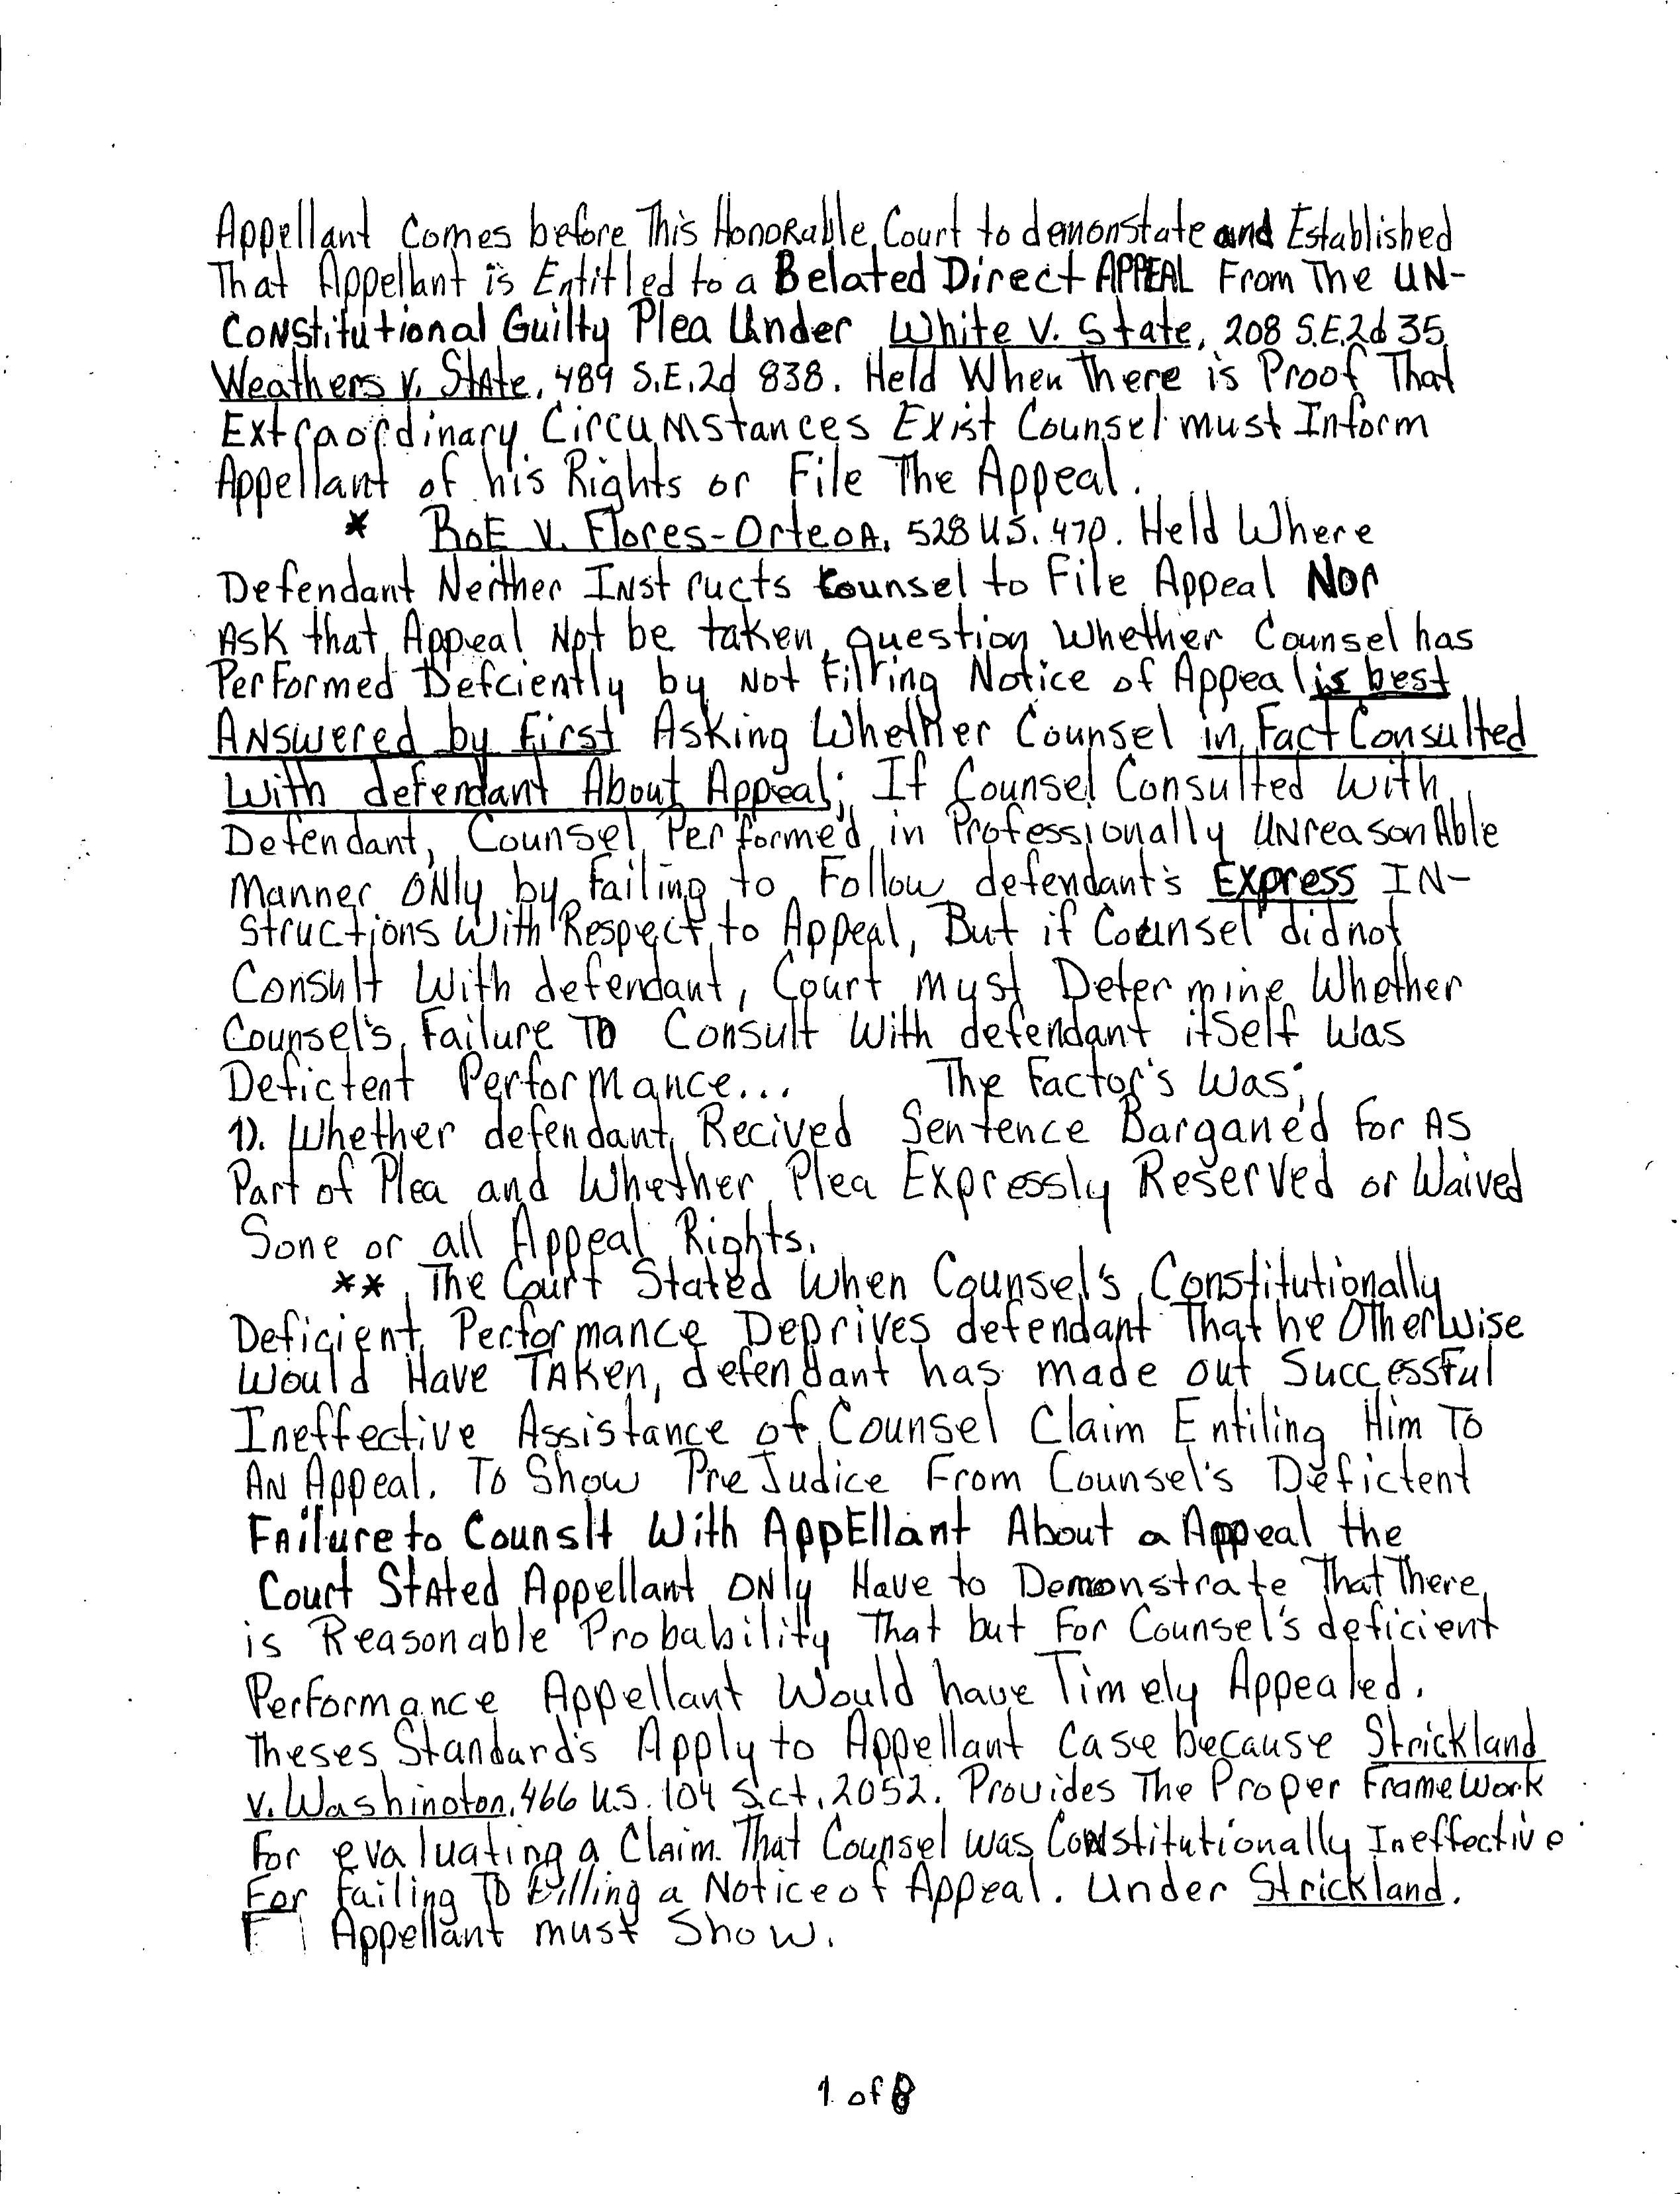 Appellant Comes before This HonoRable Court to demonstate and Established
That Appellant is Entitled to a Belated Direct APPEAL From The UN-
CONStitutional Guilty Plea Under White V. State, 208 S.E.2d 35
Weathers V. StAte, 489 S.E.2d 838. Held When There is Proof That
Extraordinary Circumstances Exist Counsel must Inform
Appellant of his Rights or File The Appeal.
* RoE V. Flores-OrteoA, 528 U.S. 470. Held Where
Defendant Neither INstructs Counsel to File Appeal Nor
Ask that Appeal Not be taken, question Whether Counsel has
PerFormed Defciently by Not Filring Notice of Appeal is best
ANswered by First Asking Whether Counsel in Fact Consulted
With defendant About Appeal; If Counsel Consulted With
Defendant, Counsel Performe'd in Professionally UNreasonAble
Manner ONly by Failing to Follow defendant's Express IN-
structions With Respect to Appeal, But if Counsel did not
Consult With defendant, Court must Determine Whether
Counsel's Failure To Consult With defendant itSelf Was
Defictent Performance... The Factor's Was;
1). Whether defendant Recived Sentence Bargane'd For AS
Part of Plea and Whether Plea Expressly Reserved or Waived
Sone or all Appeal Rights.
** The Court Stated When Counsel's Constitutionally
Deficient Performance Deprives defendant That he Otherwise
Would Have TAKen, defendant has made out SuccessFul
Ineffective Assistance of Counsel Claim Entiling Him To
AN Appeal. To Show PreJudice From Counsel's Defictent
FAilure to Counslt With AppEllant About a Appeal the
Court StAted Appellant ONly Have to Demonstrate That There
is Reasonable Probability That but For Counsel's deficient
Performance Appellant Would have Timely Appealed.
Theses Standard's Apply to Appellant Case because Strickland
v. Washinoton, 466 U.S. 104 S.ct. 2052. Provides The Proper FrameWork
For evaluating a Claim That Counsel was CoNstitutionally Ineffective
For Failing To Filling a Notice of Appeal. Under Strickland.
Appellant must Show.
1 of 8